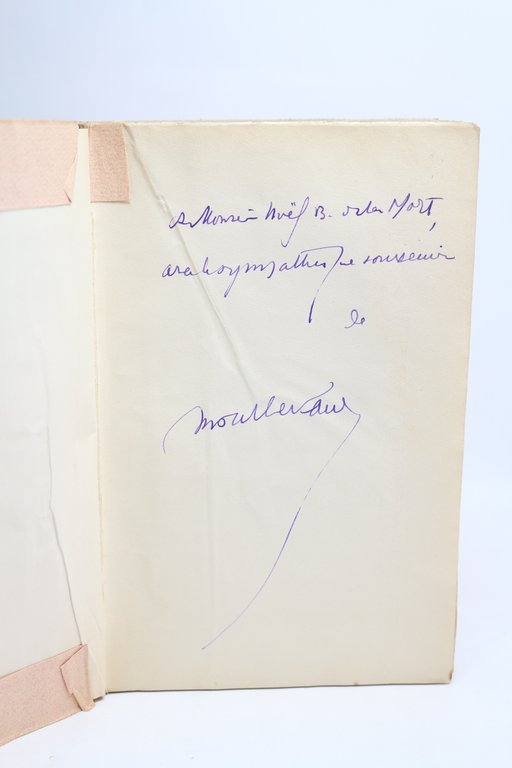 A Monsieur Noël B. de la Mort,
avec le sympathique souvenir
de
Montherlant